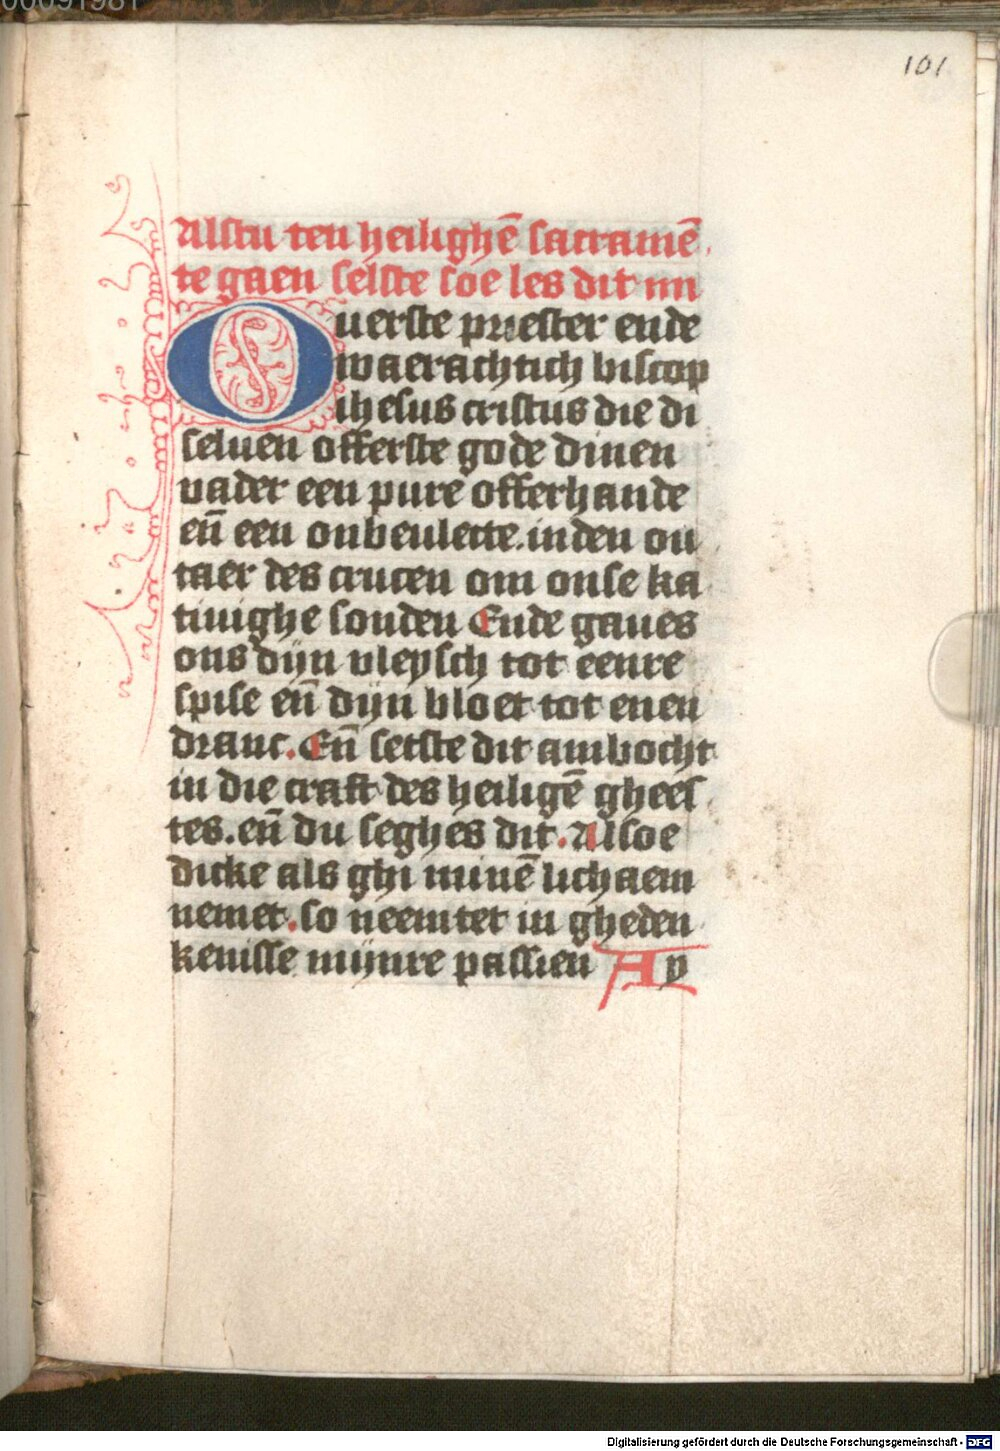 101
Alstu ten heilighē sacramē
te gaen selste soe les dit nn
Ouerste priester ende
waerachtich biscop
ihesus cristus die di
seluen offerste gode dinen
vader een pure offerhande
en̄ een onbeulecte. inden ou
taer des crucen om onse ka
tiuighe sonden Ende gaues
ons dijn vleysch tot eenre
spise en̄ dijn bloet tot enen
dranc. En̄ setste dit ambocht
in die craft des heiligē ghees
tes. en̄ du seghes dit. Alsoe
dicke als ghi minē lichaem
nemet. so neemtet in gheden
kenisse mijnre passien Ay
Digitalisierung gefördert durch die Deutsche Forschungsgemeinschaft - DFG